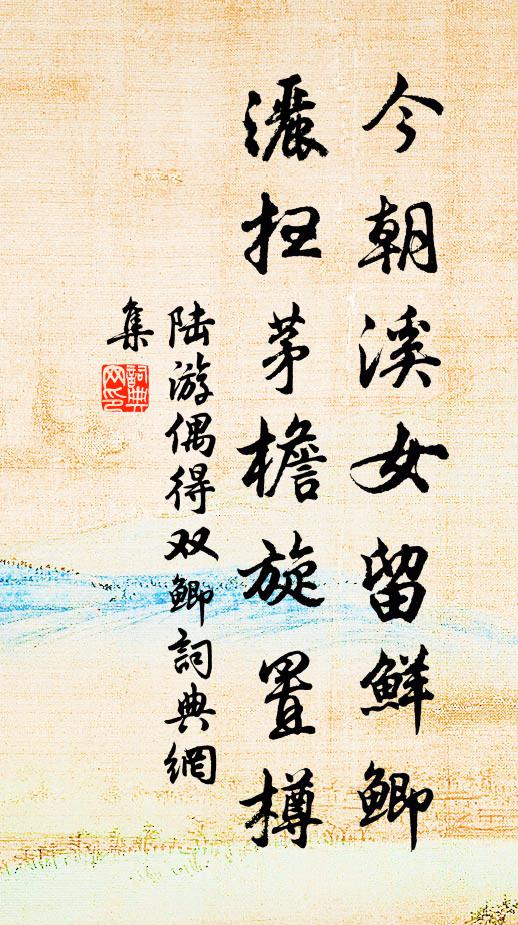 今朝溪女留鮮鯽
灑扫茅檐旋置樽
陆游偶得双鲫詞典網
集
詞典网印